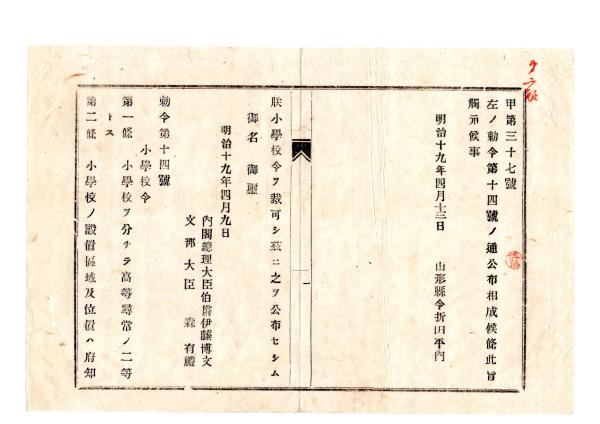 甲第三十七號
左ノ勅令第十四號ノ通公布相成候條此旨
觸示候事
明治十九年四月十三日
山形縣令折田平內
朕小學校令ヲ裁可シ玆ニ之ヲ公布セシム
御名 御璽
明治十九年四月九日
內閣總理大臣伯爵伊藤博文
文部大臣 森有禮
勅令第十四號
小學校令
第一條 小學校ヲ分チテ高等尋常ノ二等
トス
第二條 小學校ノ設置區域及位置ハ府知